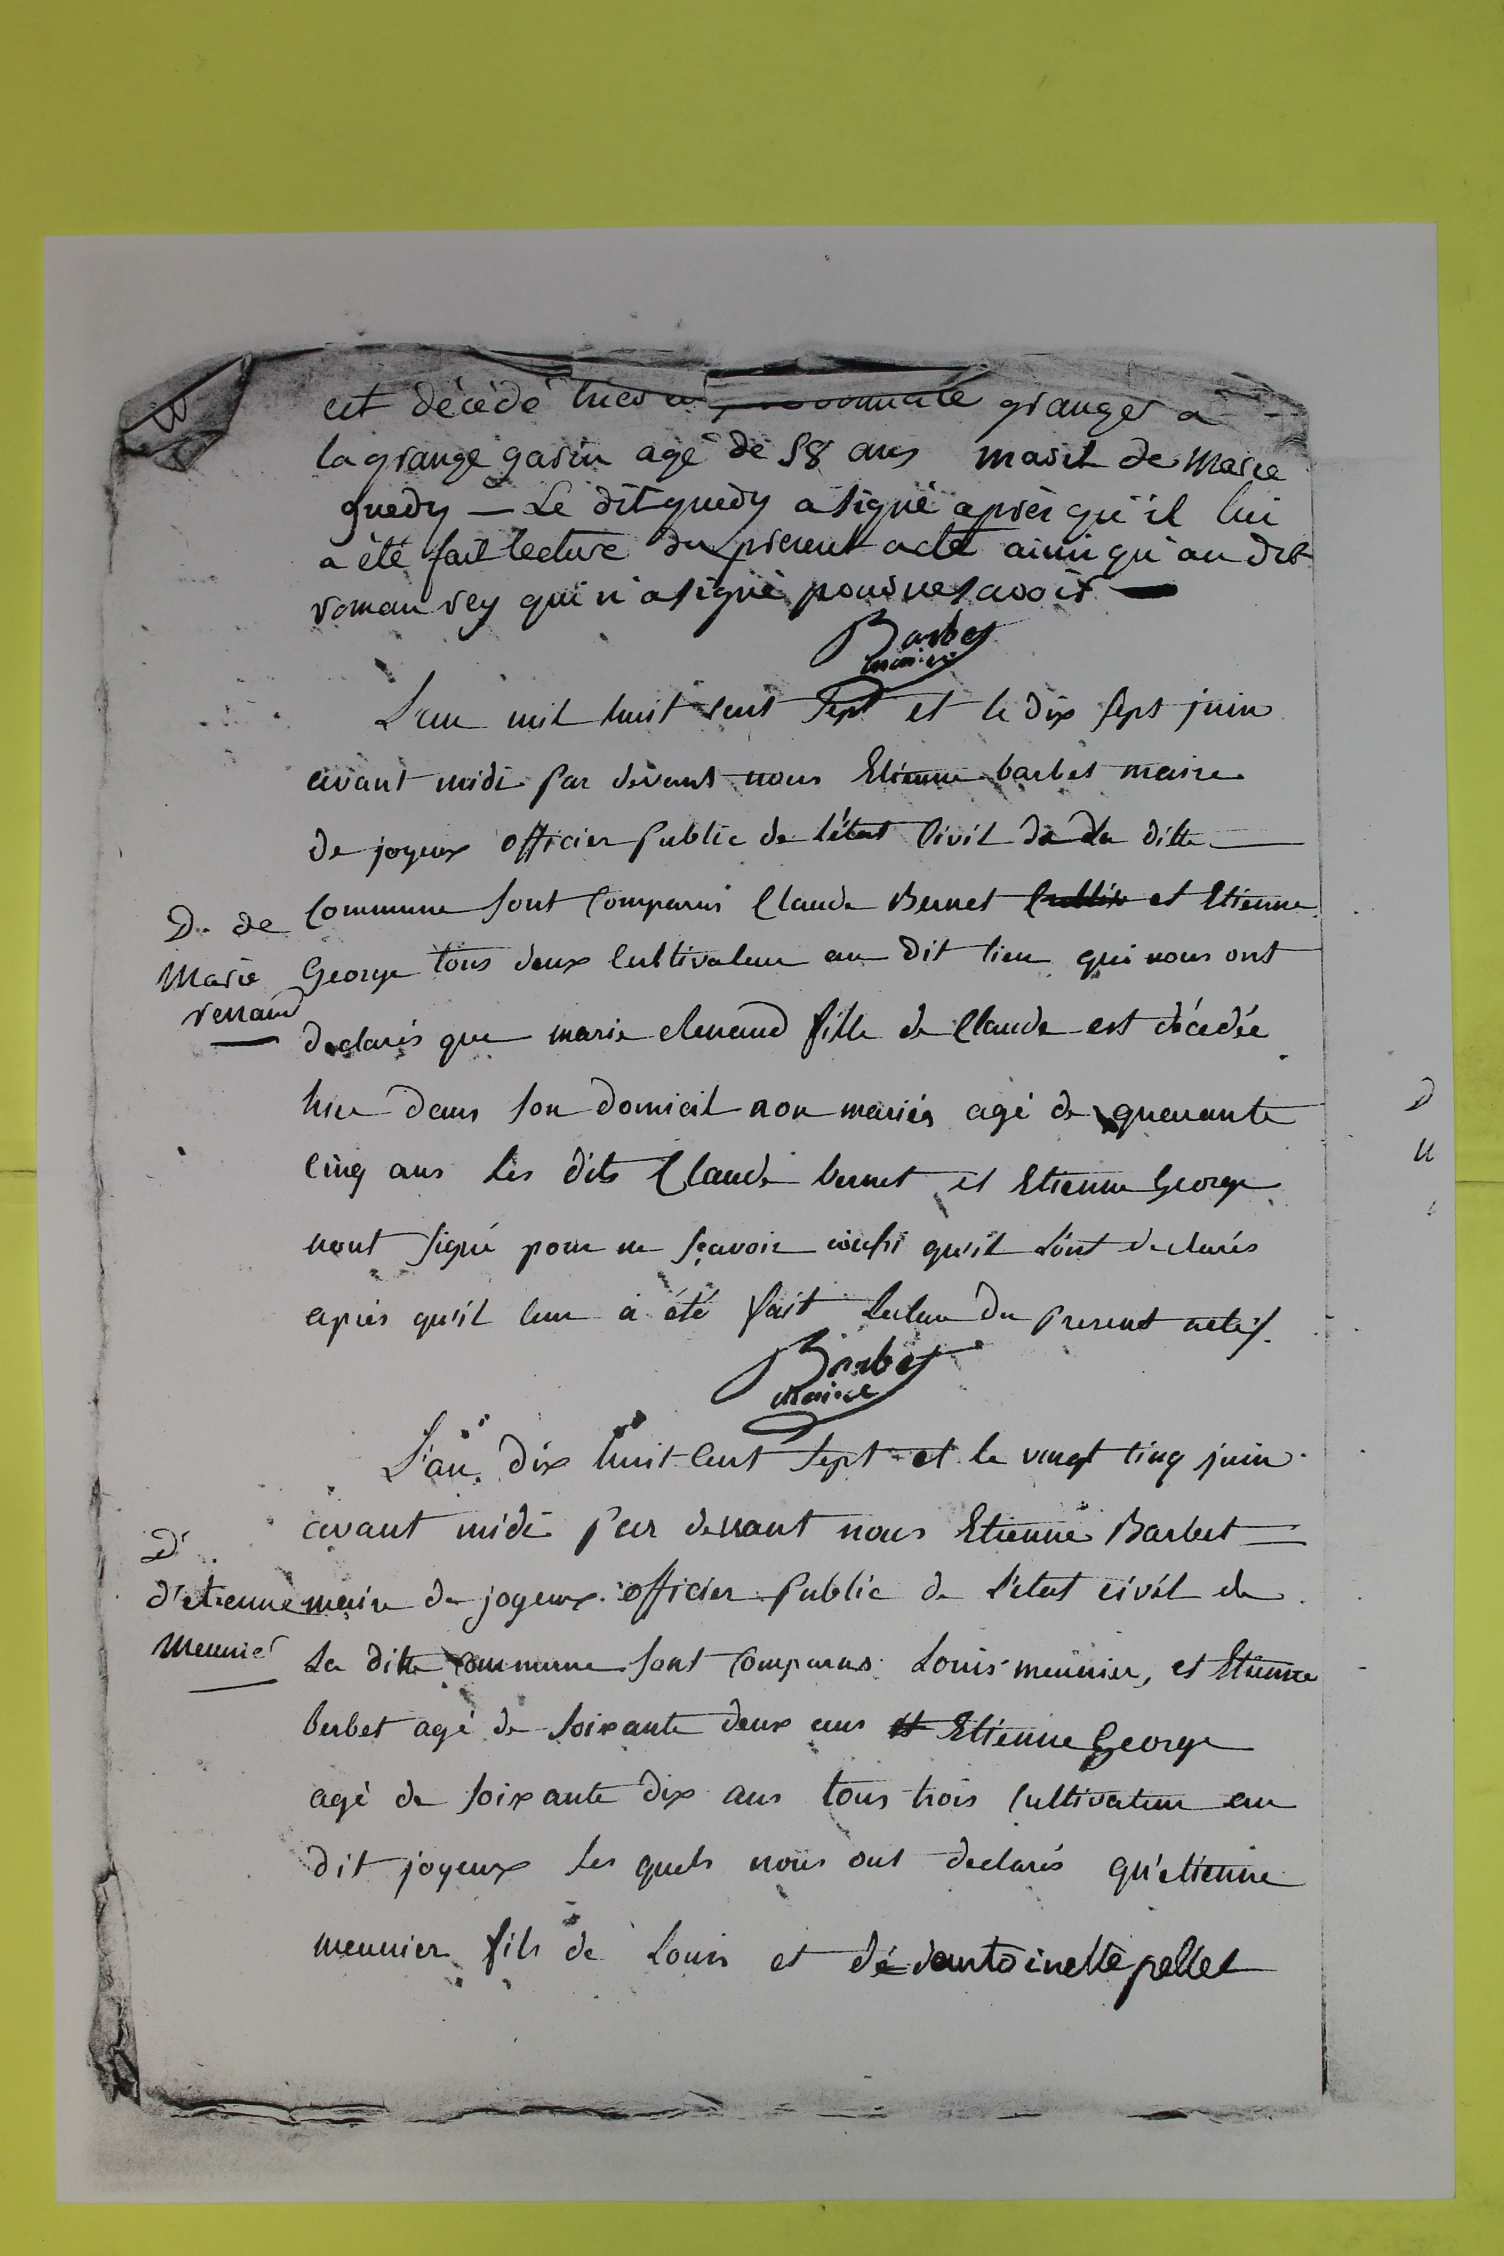 est décédé hier granger a
la grange gavin agé de 58 ans marit de Marie
guedy — Le dit guedy a signé aprèr qu'il lui
a été fait lecture du present acte ainsi qu'au dit
roman rey qui n'a signé pour ne savoir —
Barbet
maire
L'an mil huit cent sept et le dix sept juin
avant midi par devant nous Etienne barbet maire
de joyeux officier public de l'état Civil de la ditte —
D. de
Commune sont Comparus Claude Bernet et Etienne
Marie
George tous deux Cultivateur au dit lieu qui nous ont
renaud
declarés que marie Renaud fille de Claude est décedée
hier dans son domicil non mariés agé de quarante
Cinq ans les dits Claude bernet et Etienne George
nont signé pour ne sçavoir ainsi qu'il l'ont declarés
apres qu'il leur a été fait lecture du present acte
Barbet
maire
L'an dix huit Cent sept et le vingt cinq juin
avant midi par devant nous Etienne Barbet —
D'
d'etienne
maire de joyeux officier public de l'état civil de
Meunier
la ditte Commune sont Comparus Louis meunier, et Etienne
berbet agé de soixante deux ans et Etienne George
agé de soixante dix ans tous trois Cultivateur au
dit joyeux les quels nous ont declarés qu'etienne
meunier fils de Louis et dé dantoinette pellet